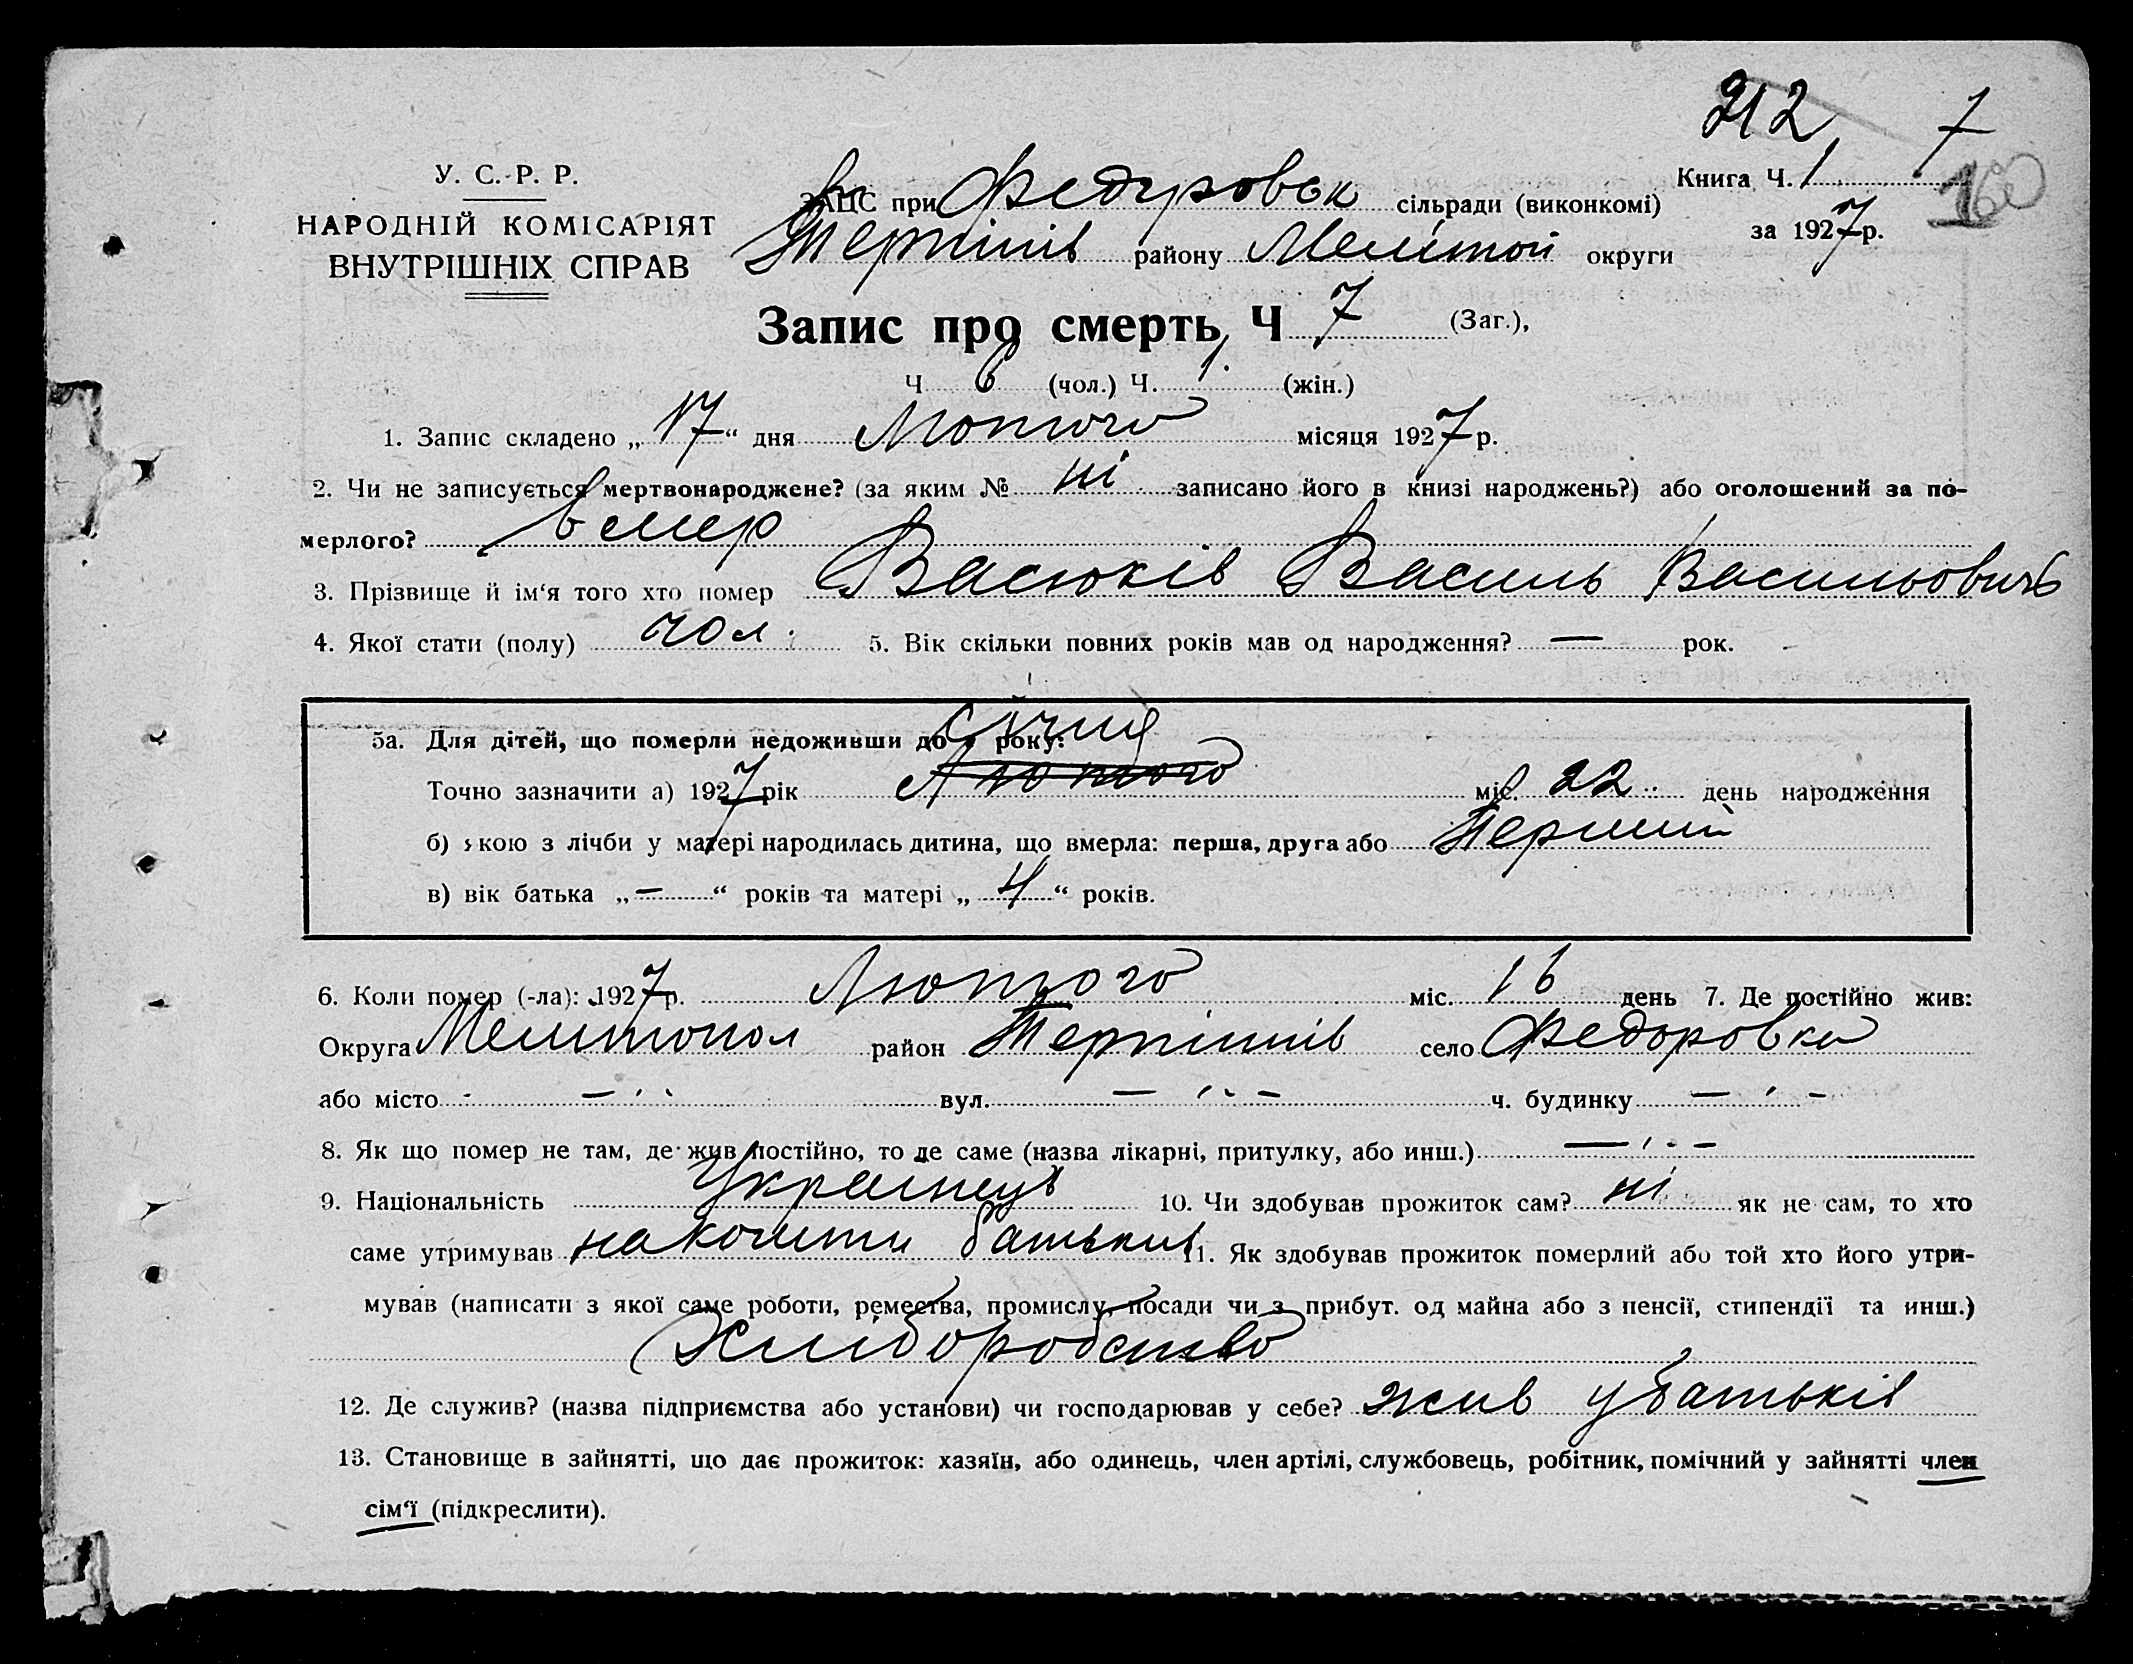 212 7
У. С. Р. Р. ЗАЦС при Федоровськ сільради (виконкомі) Книга Ч. 1 160
НАРОДНІЙ КОМІСАРІЯТ Терпінів району Меліітопй округи за 1927 р.
ВНУТРІШНІХ СПРАВ
Запис про смерть, Ч 7 (Заг.),
Ч 6 (чол.) Ч. 1. (жін.)
1. Запис складено „17“ дня Лютого місяця 1927 р.
2. Чи не записується мертвонароджене? (за яким № ні записано його в книзі народжень?) або оголошений за по-
мерлого? вмер
3. Прізвище й ім‘я того хто помер Васюків Василь Васильовичь
4. Якої стати (полу) чол. 5. Вік скільки повних років мав од народження? — рок.
5а. Для дітей, що померли недоживши до 1 року: Січня
Точно зазначити а) 1927 рік Лютого міс. 22 день народження
б) якою з лічби у матері народилась дитина, що вмерла: перша, друга або Перший
в) вік батька „—“ років та матері „ “ років.
6. Коли помер (-ла): 1927 р. Лютого міс. 16 день 7. Де постійно жив:
Округа Мелитопол район Терпінів село Федоровка
або місто — вул. — ч. будинку —
8. Як що помер не там, де жив постійно, то де саме (назва лікарні, притулку, або инш.) —
9. Національність Украінець 10. Чи здобував прожиток сам? ні як не сам, то хто
саме утримував на кошти батьків 11. Як здобував прожиток померлий або той хто його утри-
мував (написати з якої саме роботи, ремества, промислу, посади чи з прибут. од майна або з пенсії, стипендії та инш.)
Хліборобство
12. Де служив? (назва підприємства або установи) чи господарював у себе? жив у батьків
13. Становище в зайнятті, що дає прожиток: хазяїн, або одинець, член артілі, службовець, робітник, помічний у зайнятті член
сім‘ї (підкреслити).